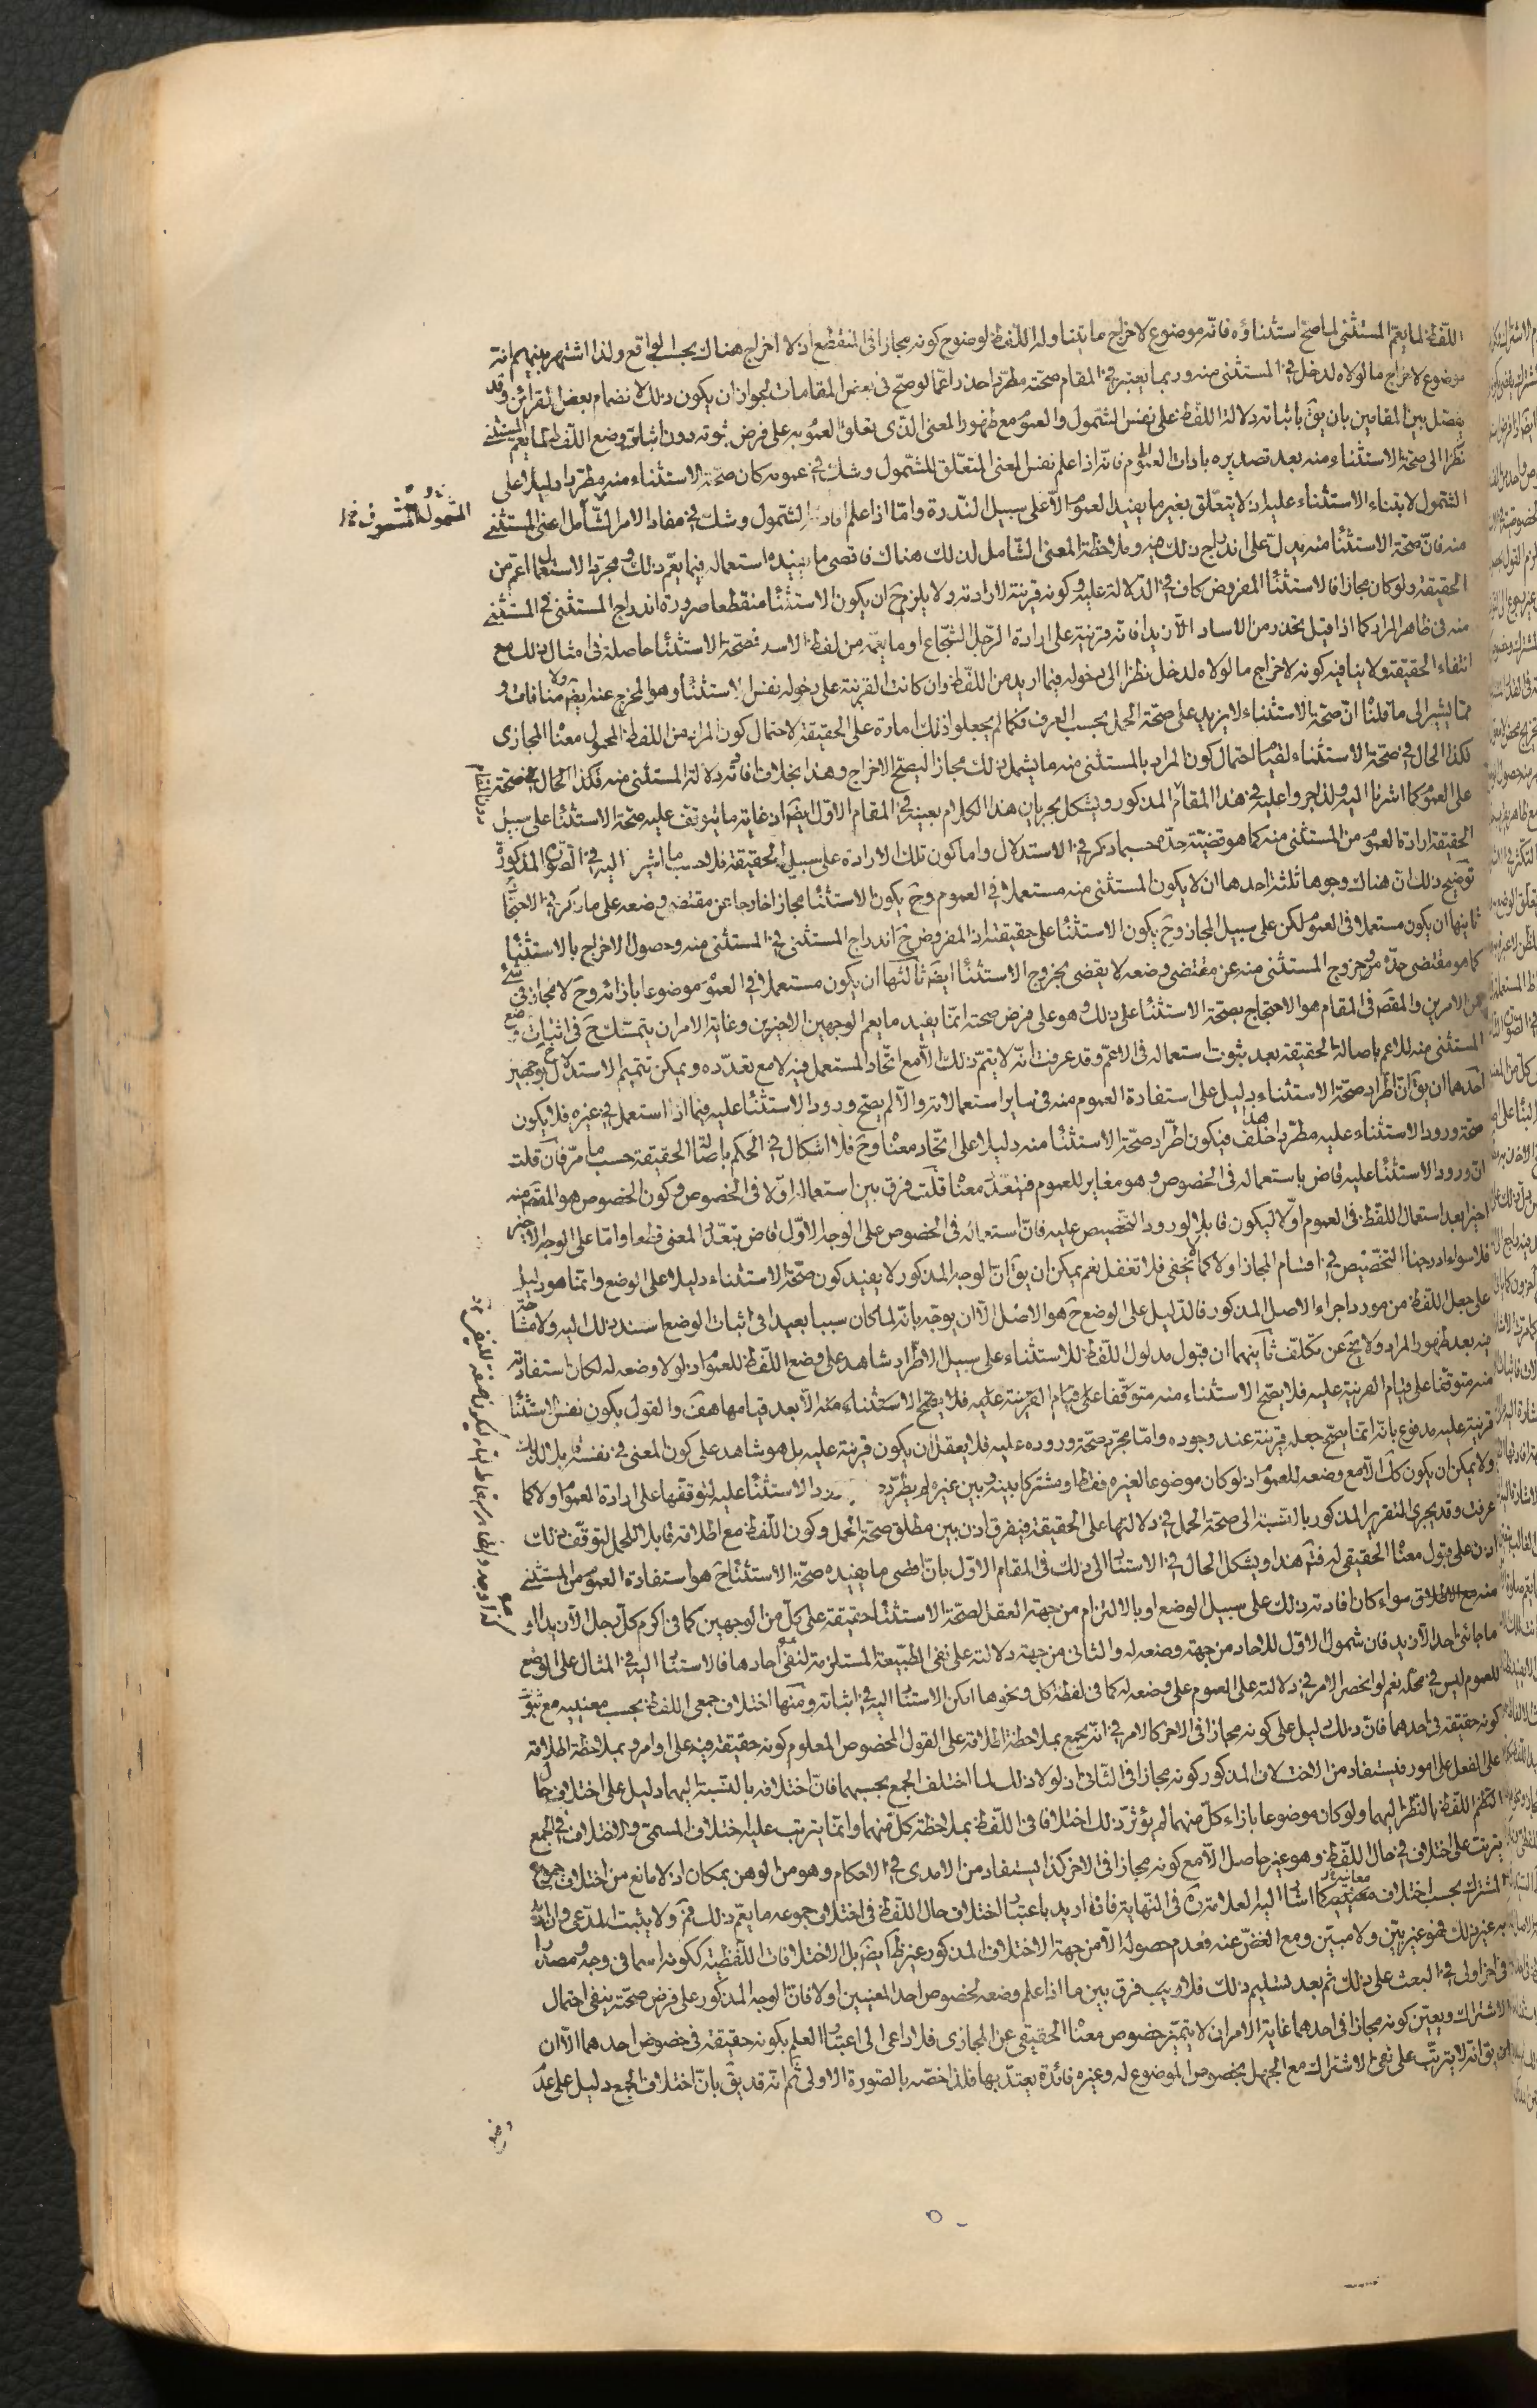 اللّفظ لما يعمّ المستثنى لما صحّ استثناؤه فانّه موضوع لاخراج ما يتناوله اللّفظ لوضوح كونه مجازا فى المنقطع اذ لا اخراج هناك بحسب الواقع ولذا اشتهر بينهم انّه
موضوع لاخراج ما لولاه لدخل فى المستثنى منه وربما يعتبر فى المقام صحّته مطّردا حذرا عمّا لو صحّ فى بعض المقامات لجواز ان يكون ذلك لانضمام بعض القرائن وقد
يفصّل بين المقامين بان يق باثباته دلالة اللّفظ على نفس الشمول والعموم مع ظهور المعنى الذى تعلق العموم به على فرض ثبوته دون اثباته وضع اللّفظ لما يعم المستثنى
نظرا الى صحّة الاستثناء منه بعد تصديره باداة العموم فانّه اذا علم نفس المعنى المتعلّق للشمول وشكّ فى عمومه كان صحّة الاستثناء منه مطّردا دليلا على
الشمول لابتناء الاستثناء عليه اذ لا يتعلّق بغير ما يفيد العموم الّا على سبيل النّدرة وامّا اذا علم الشمول وشكّ فى مفاد الامر الشّامل اعنى المستثنى
منه فانّ صحّة الاستثناء منه يدلّ على اندراج ذلك فيه وملاحظة المعنى الشّامل لذلك هناك فاقصى ما يفيده استعماله فيما يعمّ ذلك ومجرّد الاستعمال اعم من
الحقيقة ولو كان مجازا فالاستثناء المفروض كاف فى الدّلالة عليه وكونه قرينة لارادته ولا يلزم ح ان يكون الاستثناء منقطعا ضرورة اندراج المستثنى فى المستثنى
منه فى ظاهر المراد كما اذا قيل تحذر من الاساد الّا زيدا فانّه قرينة على ارادة الرّجل الشّجاع او ما يعمّه من لفظ الاسد فصحّة الاستثناء حاصلة فى امثال ذلك مع
انتفاء الحقيقة ولا ينافيه كونه لاخراج ما لولاه لدخل نظرا الى دخوله فيما اريد من اللّفظ وان كانت القرينة على دخوله نفس الاستثناء وهو المخرج عنه ايضا ولا منافات و
ممّا يشير الى ما قلنا انّ صحّة الاستثناء لا يزيد على صحّة الحمل بحسب العرف فكما لم يجعلوا ذلك امارة على الحقيقة لاحتمال كون المراد من اللفظ المحمول معناه المجازى
فكذا الحال فى صحّة الاستثناء لقيام احتمال كون المراد بالمستثنى منه ما يشمل ذلك مجازا ليصحّ الاخراج وهذا بخلاف افادته دلالة المستثنى منه فكذا الحال فى صحّة
على العموم كما اشرنا اليه ولذا جروا عليه فى هذا المقام المذكور ويشكل بجريان هذا الكلام بعينه فى المقام الاوّل ايض اذ غاية ما يتوقّف عليه صحّة الاستثناء على سبيل
الحقيقة ارادة العموم من المستثنى منه كما هو قضيّة حدّه حسبما ذكر فى الاستدلال واما كون تلك الارادة على سبيل الحقيقة فلا حسب ما اشير اليه فى الصّورة المذكورة
توضيح ذلك انّ هناك وجوها ثلثة احدها ان لا يكون المستثنى منه مستعملا فى العموم وح يكون الاستثناء مجازا خارجا عن مقتضى وضعه على ما ذكر فى الاحتجاج
ثانيها ان يكون مستعملا فى العموم لكن على سبيل المجاز وح يكون الاستثناء على حقيقته اذ المفروض ح اندراج المستثنى فى المستثنى منه وحصول الاخراج بالاستثناء
كما هو مقتضى حدّه وخروج المستثنى منه عن مقتضى وضعه لا يقضى بخروج الاستثناء ايض ثالثها ان يكون مستعملا فى العموم موضوعا بازائه وح لا مجاز فى شئ
من الامرين والمقصود فى المقام هو الاحتجاج بصحّة الاستثناء على ذلك وهو على فرض صحته انّما يفيد ما يعم الوجهين الاخيرين وغاية الامر ان يتمسّك ح فى اثبات وضع
المستثنى منه للاعم باصالة الحقيقة بعد ثبوت استعماله فى الاعمّ وقد عرفت انّه لا يتمّ ذلك الّا مع اتّحاد المستعمل فيه لا مع تعدّده ويمكن تتميم الاستدلال ح بوجهين
احدهما ان يق انّ اطّراد صحّة الاستثناء دليل على استفادة العموم منه فى ساير استعمالاته والّا لم يصحّ ورود الاستثناء عليه فيما اذا استعمل فى غيره فلا يكون
صحّة ورود الاستثناء عليه مطّردا هذا خلف فيكون اطّراد صحّة الاستثناء منه دليلا على اتّحاد معناه وح فلا اشكال فى الحكم باصالة الحقيقة حسب ما مرّ فان قلت
انّ ورود الاستثناء عليه قاض باستعماله فى الخصوص وهو مغاير للعموم فيتعدّد معناه قلت فرق بين استعماله اوّلا فى الخصوص وكون الخصوص هو المقصود منه
اخيرا بعد استعمال اللفظ فى العموم اوّلا ليكون قابلا لورود التخصيص عليه فانّ استعماله فى الخصوص على الوجه الاوّل قاض بتعدّد المعنى قطعا وامّا على الوجه الاخير
فلا سواء ادرجنا التخصيص فى اقسام المجاز او لا كما لا يخفى فلا تغفل نعم يمكن ان يق انّ الوجه المذكور لا يفيد كون صحّة الاستثناء دليلا على الوضع وانّما هو دليل
على جعل اللفظ من مورد اجراء الاصل المذكور فالدّليل على الوضع ح هو الاصل الّا ان يوجّه بانّه لما كان سببا بعيدا فى اثبات الوضع اسند ذلك اليه ولا مشاحّة
فيه بعد ظهور المراد ولا يخ عن تكلّف ثانيهما ان قبول مدلول اللّفظ للاستثناء على سبيل الاطّراد شاهد على وضع اللّفظ للعموم اذ لولا وضعه له لكان استفادته
منه متوقفا على قيام القرينة عليه فلا يصحّ الاستثناء منه متوقّفا على قيام القرينة عليه فلا يصحّ الاستثناء منه الّا بعد قيامها هف والقول بكون نفس الاستثناء
قرينة عليه مدفوع بانّه انّما يصحّ جعله قرينة عند وجوده وامّا مجرّد صحّة وروده عليه فلا يعقل ان يكون قرينة عليه بل هو شاهد على كون المعنى فى نفسه قابلا لذلك
ولا يمكن ان يكون كك الّا مع وضعه للعموم اذ لو كان موضوعا لغيره فقط او مشتركا بينه وبين غيره لم يطّرد الاستثناء عليه لتوقفها على ارادة العموم اولا كما
عرفت وقد يجرى التقرير المذكور بالنّسبة الى صحّة الحمل فى دلالتها على الحقيقة فيفرق اذن بين مطلق صحة الحمل وكون اللّفظ مع اطلاقه قابلا للحمل لتوقّف ذلك
اذن على قبول معناه الحقيقى له فتم هذا ويشكل الحال فى الاستناد الى ذلك فى المقام الاوّل بانّ اقصى ما يفيده صحّة الاستثناء ح هو استفادة العموم من المستثنى
منه مع الاطلاق سواء كان افادته ذلك على سبيل الوضع او بالالتزام من جهة العقل لصحّة الاستثناء حقيقة على كلّ من الوجهين كما فى اكرم كلّ رجل الّا زيدا او
ما جائنى احد الّا زيد فان شمول الاوّل للاحاد من جهة وضعه له والثانى من جهة دلالته على نفى الطّبيعة المستلزمة لنفى احادها فالاستناد اليه فى المثال على الوضع
للعموم ليس فى محلّه نعم لو انحصر الامر فى دلالته على العموم على وضعه له كما فى لفظة كل ونحوها امكن الاستناد اليه فى اثباته ومنها اختلاف جمعى اللفظ بحسب معنييه مع ثبوت
كونه حقيقة فى احدهما فانّ ذلك دليل على كونه مجازا فى الاخر كالامر فى انّه يجمع بملاحظة اطلاقه على القول المخصوص المعلوم كونه حقيقة فيه على اوامر وبملاحظة اطلاقه
على الفعل على امور فيستفاد من الاختلاف المذكور كونه مجازا فى الثّانى اذ لولا ذلك لما اختلف الجمع بحسبهما فانّ اختلافه بالنّسبة اليهما دليل على اختلاف حال
اللّفظ بالنّظر اليهما ولو كان موضوعا بازاء كلّ منهما لم يؤثّر ذلك اختلافا فى اللّفظ بملاحظة كلّ منهما وانّما يترتب عليه اختلاف المسمّى والاختلاف فى الجمع
يترتب على اختلاف فى حال اللّفظ وهو غير حاصل الّا مع كونه مجازا فى الاخر كذا يستفاد من الامدى فى الاحكام وهو من الوهن بمكان اذ لا مانع من اختلاف جموع
المشترك بحسب اختلاف معانيه كما اشار اليه العلامة ره فى النّهاية فانّه اريد باعتبار اختلاف حال اللّفظ فى اختلاف جموعه ما يعمّ ذلك فم ولا يثبت المدّعى وان اريد
به غير ذلك فهو غير بيّن ولا مبيّن ومع الغضّ عنه فعدم حصوله الّا من جهة الاختلاف المذكور غير ظاهر ايض بل الاختلافات اللّفظية ككونه اسما فى وجه ومصدرا
فى اخر اولى فى البعث على ذلك ثم بعد تسليم ذلك فلا ريب فرق بين ما اذا علم وضعه لخصوص احد المعنيين اولا فانّ الوجه المذكور على فرض صحّته ينفى احتمال
الاشتراك ويعيّن كونه مجازا فى احدهما غاية الامر انّه لا يتميّز خصوص معناه الحقيقى عن المجازى فلا داعى الى اعتبار العلم بكونه حقيقة فى خصوص احدهما الّا ان
يق انّه لا يترتّب على نفى الاشتراك مع الجهل بخصوص الموضوع له وغيره فائدة يعتدّ بها فلذا خصّه بالصّورة الاولى ثم انّه قد يق بانّ اختلاف الجمع دليل على عدم